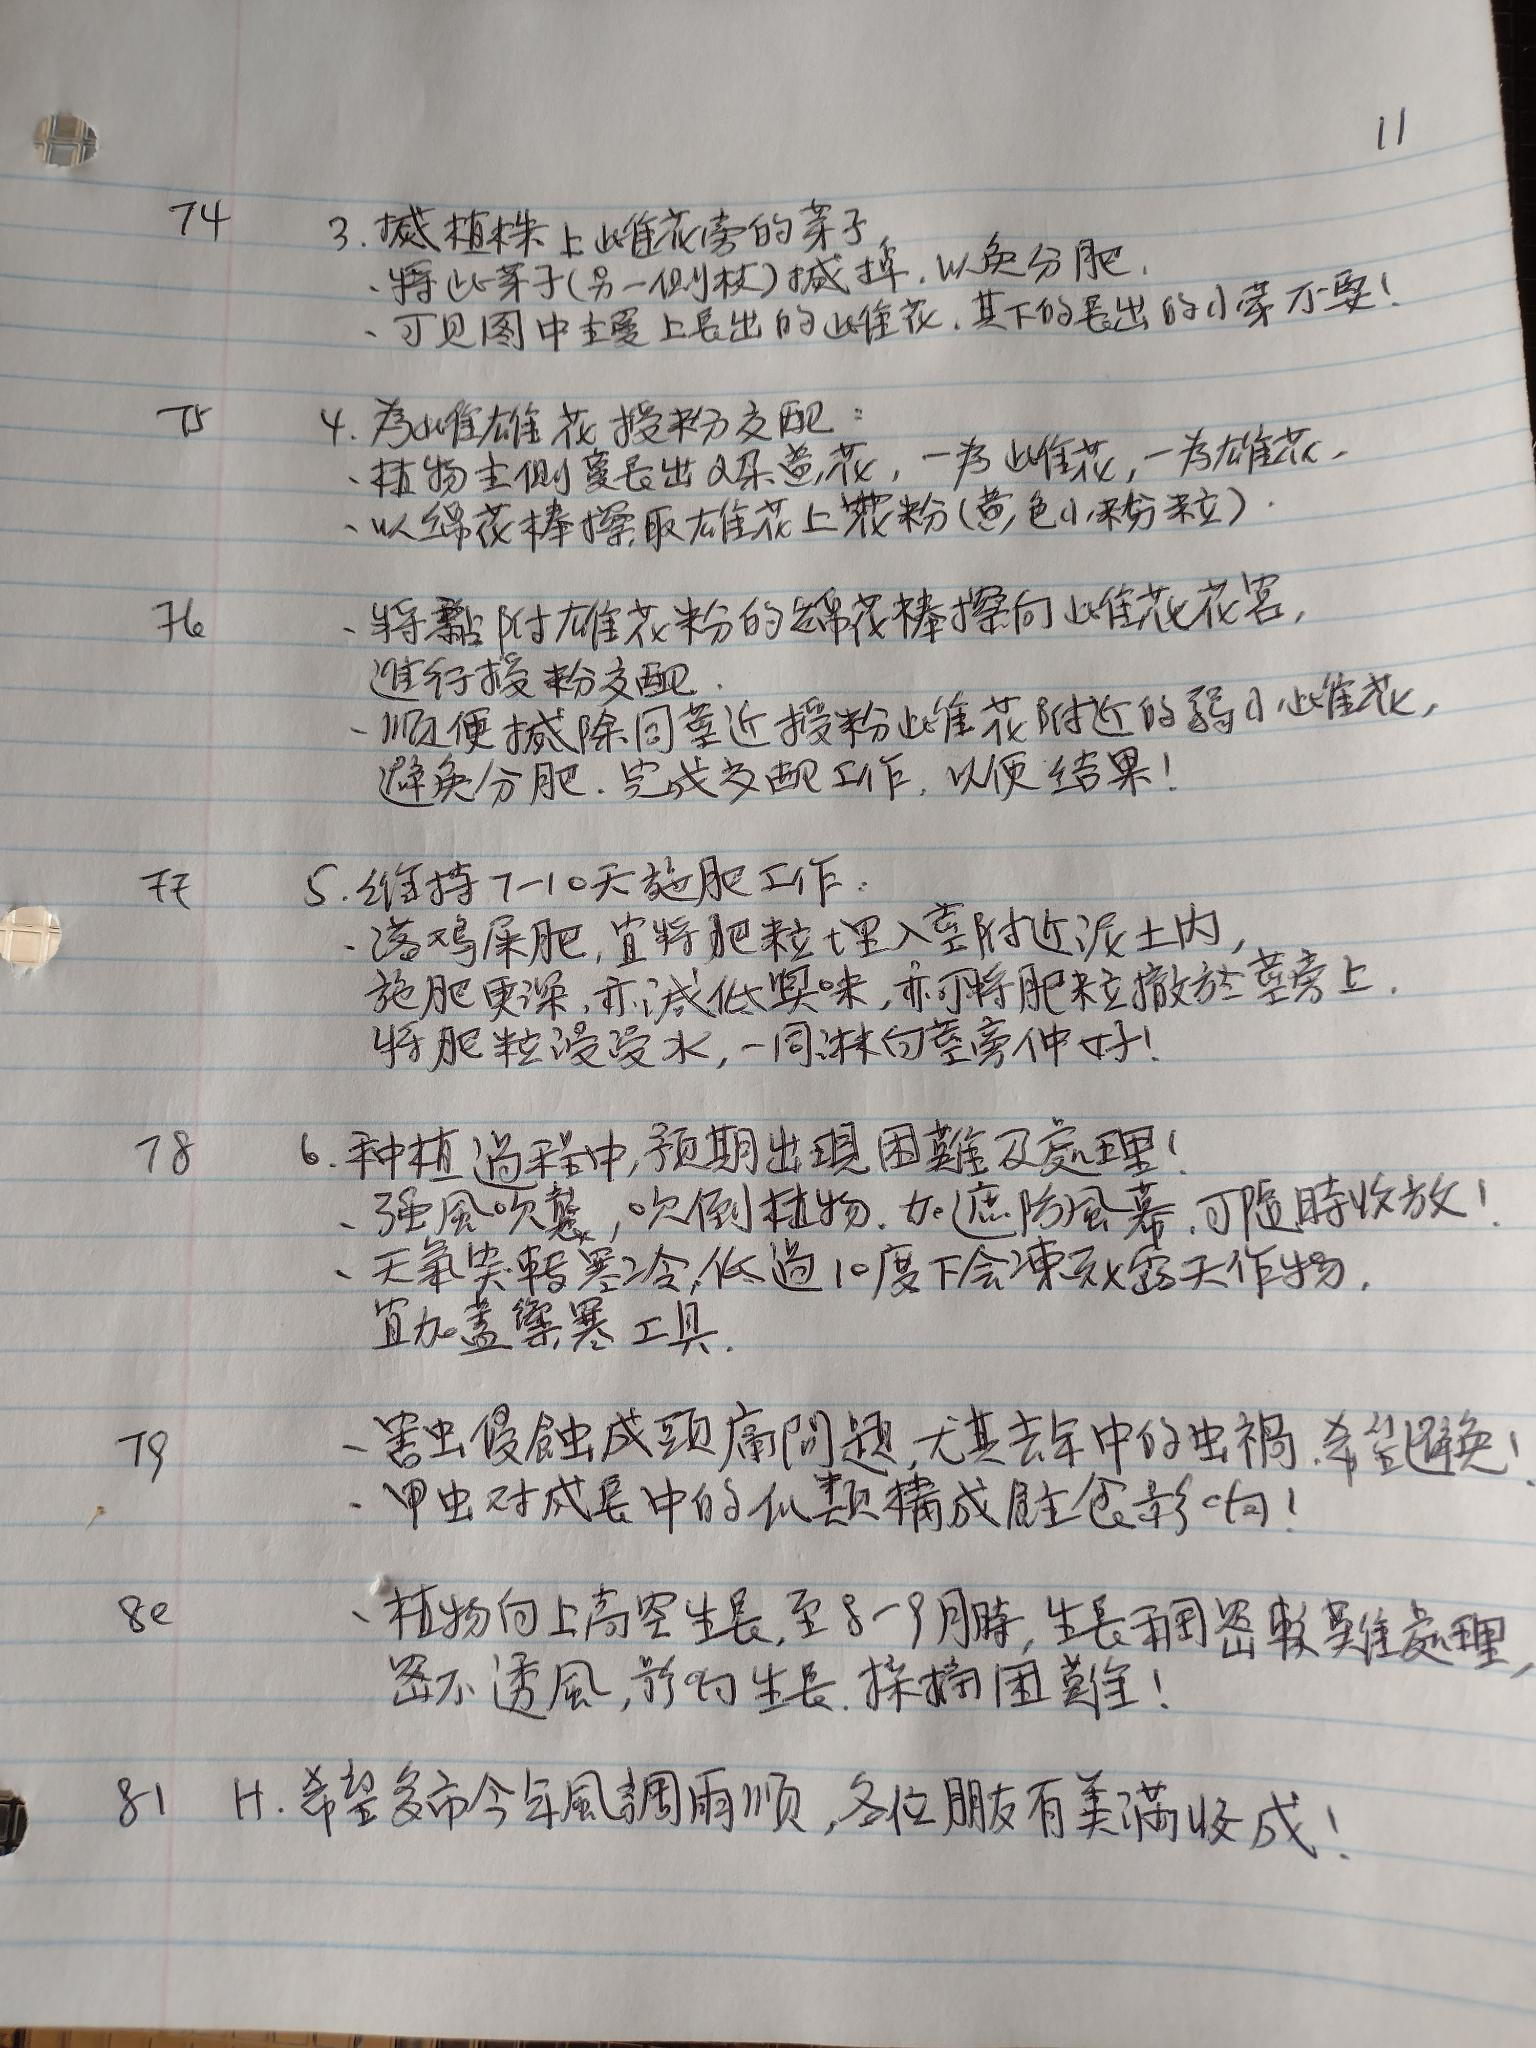 11
74 3. 搣植株上雌花旁的芽子
、將此芽子(另一側枝)搣掉、以免分肥、
、可见图中主蔓上長出的雌花、其下的長出的小芽不要！
75 4. 為雌雄花授粉交配：
、植物主側蔓長出2朵黃花，一為雌花，一為雄花、
、以绵花棒擦取雄花上花粉(黃色小粉粒)、
76 、將黏附雄花粉的绵花棒擦向雌花花宮，
進行授粉交配、
、順便搣除同莖近授粉雌花附近的弱小雌花，
避免分肥、完成交配工作、以便结果！
77 5. 维持7-10天施肥工作：
、落鸡屎肥，宜將肥粒埋入莖附近泥土内，
施肥更深，亦減低臭味，亦可將肥粒撒於莖旁上、
將肥粒浸浸水，一同淋向莖旁仲好！
78 6. 种植過程中，预期出現困難及處理！
、强風吹襲，吹倒植物、加遮防風幕、可隨時收放！
、天氣突轉寒冷，低過10度下会凍死露天作物、
宜加蓋禦寒工具、
79 、害虫侵蝕成頭痛問題，尤其去年中的虫禍、希望避免！
、甲虫对成長中的瓜類構成蛀食影响！
80 、植物向上高空生長，至8-9月時，生長稠密較難處理，
密不透風，影响生長、採摘困難！
81 H. 希望多市今年風調雨順，各位朋友有美滿收成！